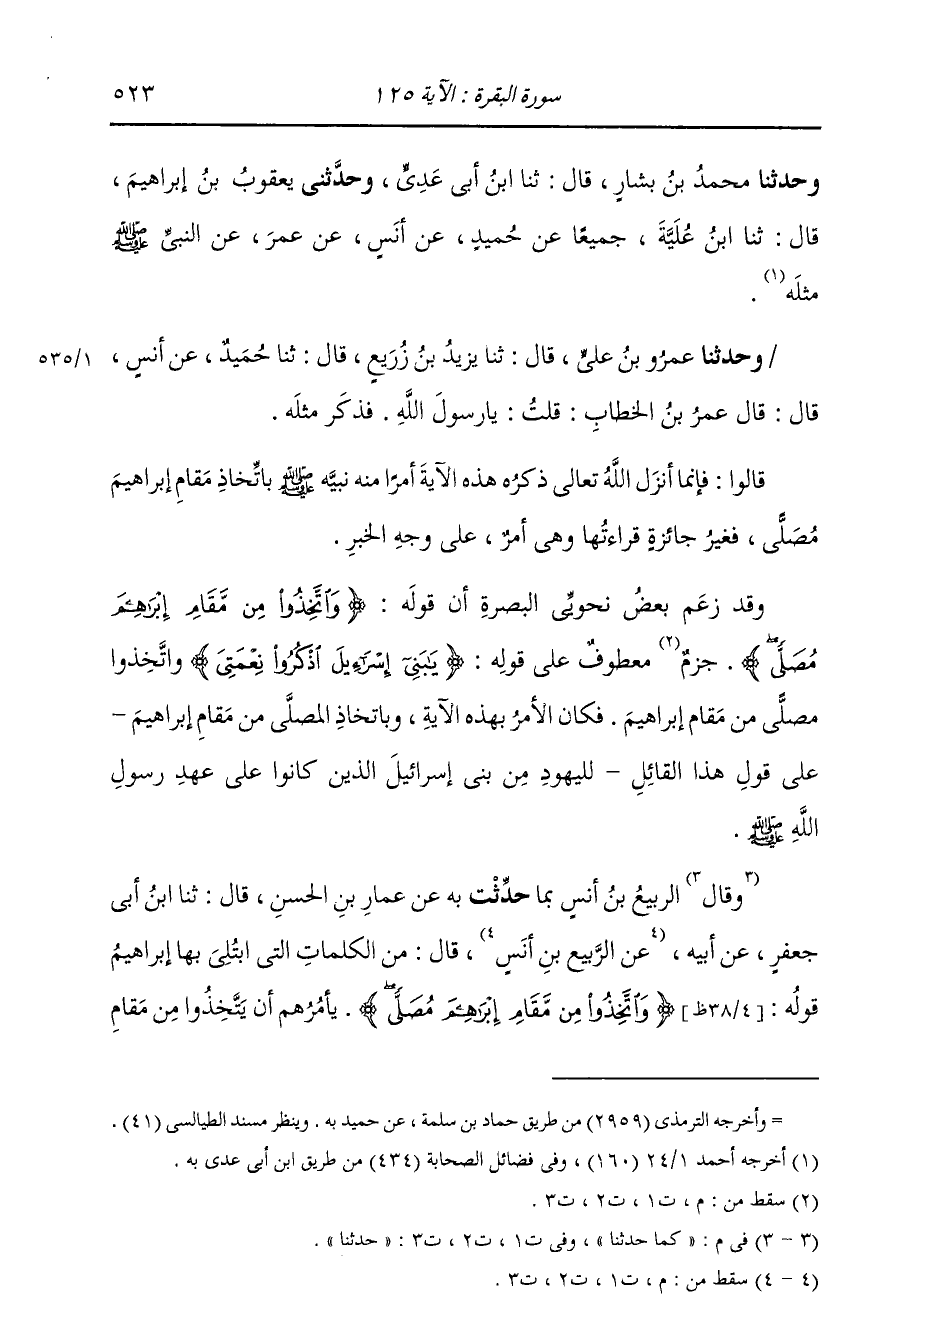 سورة البقرة : الآية ١٢٥ ٥٢٣
وحدثنا محمدُ بنُ بشارٍ ، قال : ثنا ابنُ أبى عَدِىٍّ ، وحدَّثنى يعقوبُ بنُ إبراهيمَ ،
قال : ثنا ابنُ عُلَيَّةَ ، جميعًا عن حُميدٍ ، عن أنَسٍ ، عن عمرَ ، عن النبىِّ ﷺ
مثلَه(١) .
/ وحدثنا عمرُو بنُ علىٍّ ، قال : ثنا يزيدُ بنُ زُرَيعٍ ، قال : ثنا حُمَيدٌ ، عن أنسٍ ، ٥٣٥/١
قال : قال عمرُ بنُ الخطابِ : قلتُ : يارسولَ اللَّهِ . فذكَر مثلَه .
قالوا : فإنما أنزَل اللَّهُ تعالى ذكرُه هذه الآيةَ أمرًا منه نبيَّه ﷺ باتِّخاذِ مَقامِ إبراهيمَ
مُصَلًّى ، فغيرُ جائزةٍ قراءتُها وهى أمرٌ ، على وجهِ الخبرِ .
وقد زعَم بعضُ نحويِّى البصرةِ أن قولَه : ﴿ وَٱتَّخِذُوا۟ مِن مَّقَامِ إِبْرَٰهِـۧمَ
مُصَلًّىۖ ﴾ . جزمٌ(٢) معطوفٌ على قولِه : ﴿ يَٰبَنِىٓ إِسْرَٰٓءِيلَ ٱذْكُرُوا۟ نِعْمَتِىَ ﴾ واتَّخِذوا
مصلًّى من مَقام إبراهيمَ . فكان الأمرُ بهذه الآيةِ ، وباتخاذِ المصلَّى من مَقامِ إبراهيمَ –
على قولِ هذا القائلِ – لليهودِ مِن بنى إسرائيلَ الذين كانوا على عهدِ رسولِ
اللَّهِ ﷺ .
(٣وقال٣) الربيعُ بنُ أنسٍ بما حدِّثْت به عن عمارِ بنِ الحسنِ ، قال : ثنا ابنُ أبى
جعفرٍ ، عن أبيه ، (٤عن الرَّبيع بنِ أنَسٍ٤) ، قال : من الكلماتِ التى ابتُلِىَ بها إبراهيمُ
قولُه : [٣٨/٤ظ] ﴿ وَٱتَّخِذُوا۟ مِن مَّقَامِ إِبْرَٰهِـۧمَ مُصَلًّىۖ ﴾ . يأمُرُهم أن يَتَّخِذُوا مِن مَقامِ
= وأخرجه الترمذى (٢٩٥٩) من طريق حماد بن سلمة ، عن حميد به . وينظر مسند الطيالسى (٤١) .
(١) أخرجه أحمد ٢٤/١ (١٦٠) ، وفى فضائل الصحابة (٤٣٤) من طريق ابن أبى عدى به .
(٢) سقط من : م ، ت١ ، ت٢ ، ت٣ .
(٣ – ٣) فى م : « كما حدثنا » ، وفى ت١ ، ت٢ ، ت٣ : « حدثنا » .
(٤ – ٤) سقط من : م ، ت١ ، ت٢ ، ت٣ .